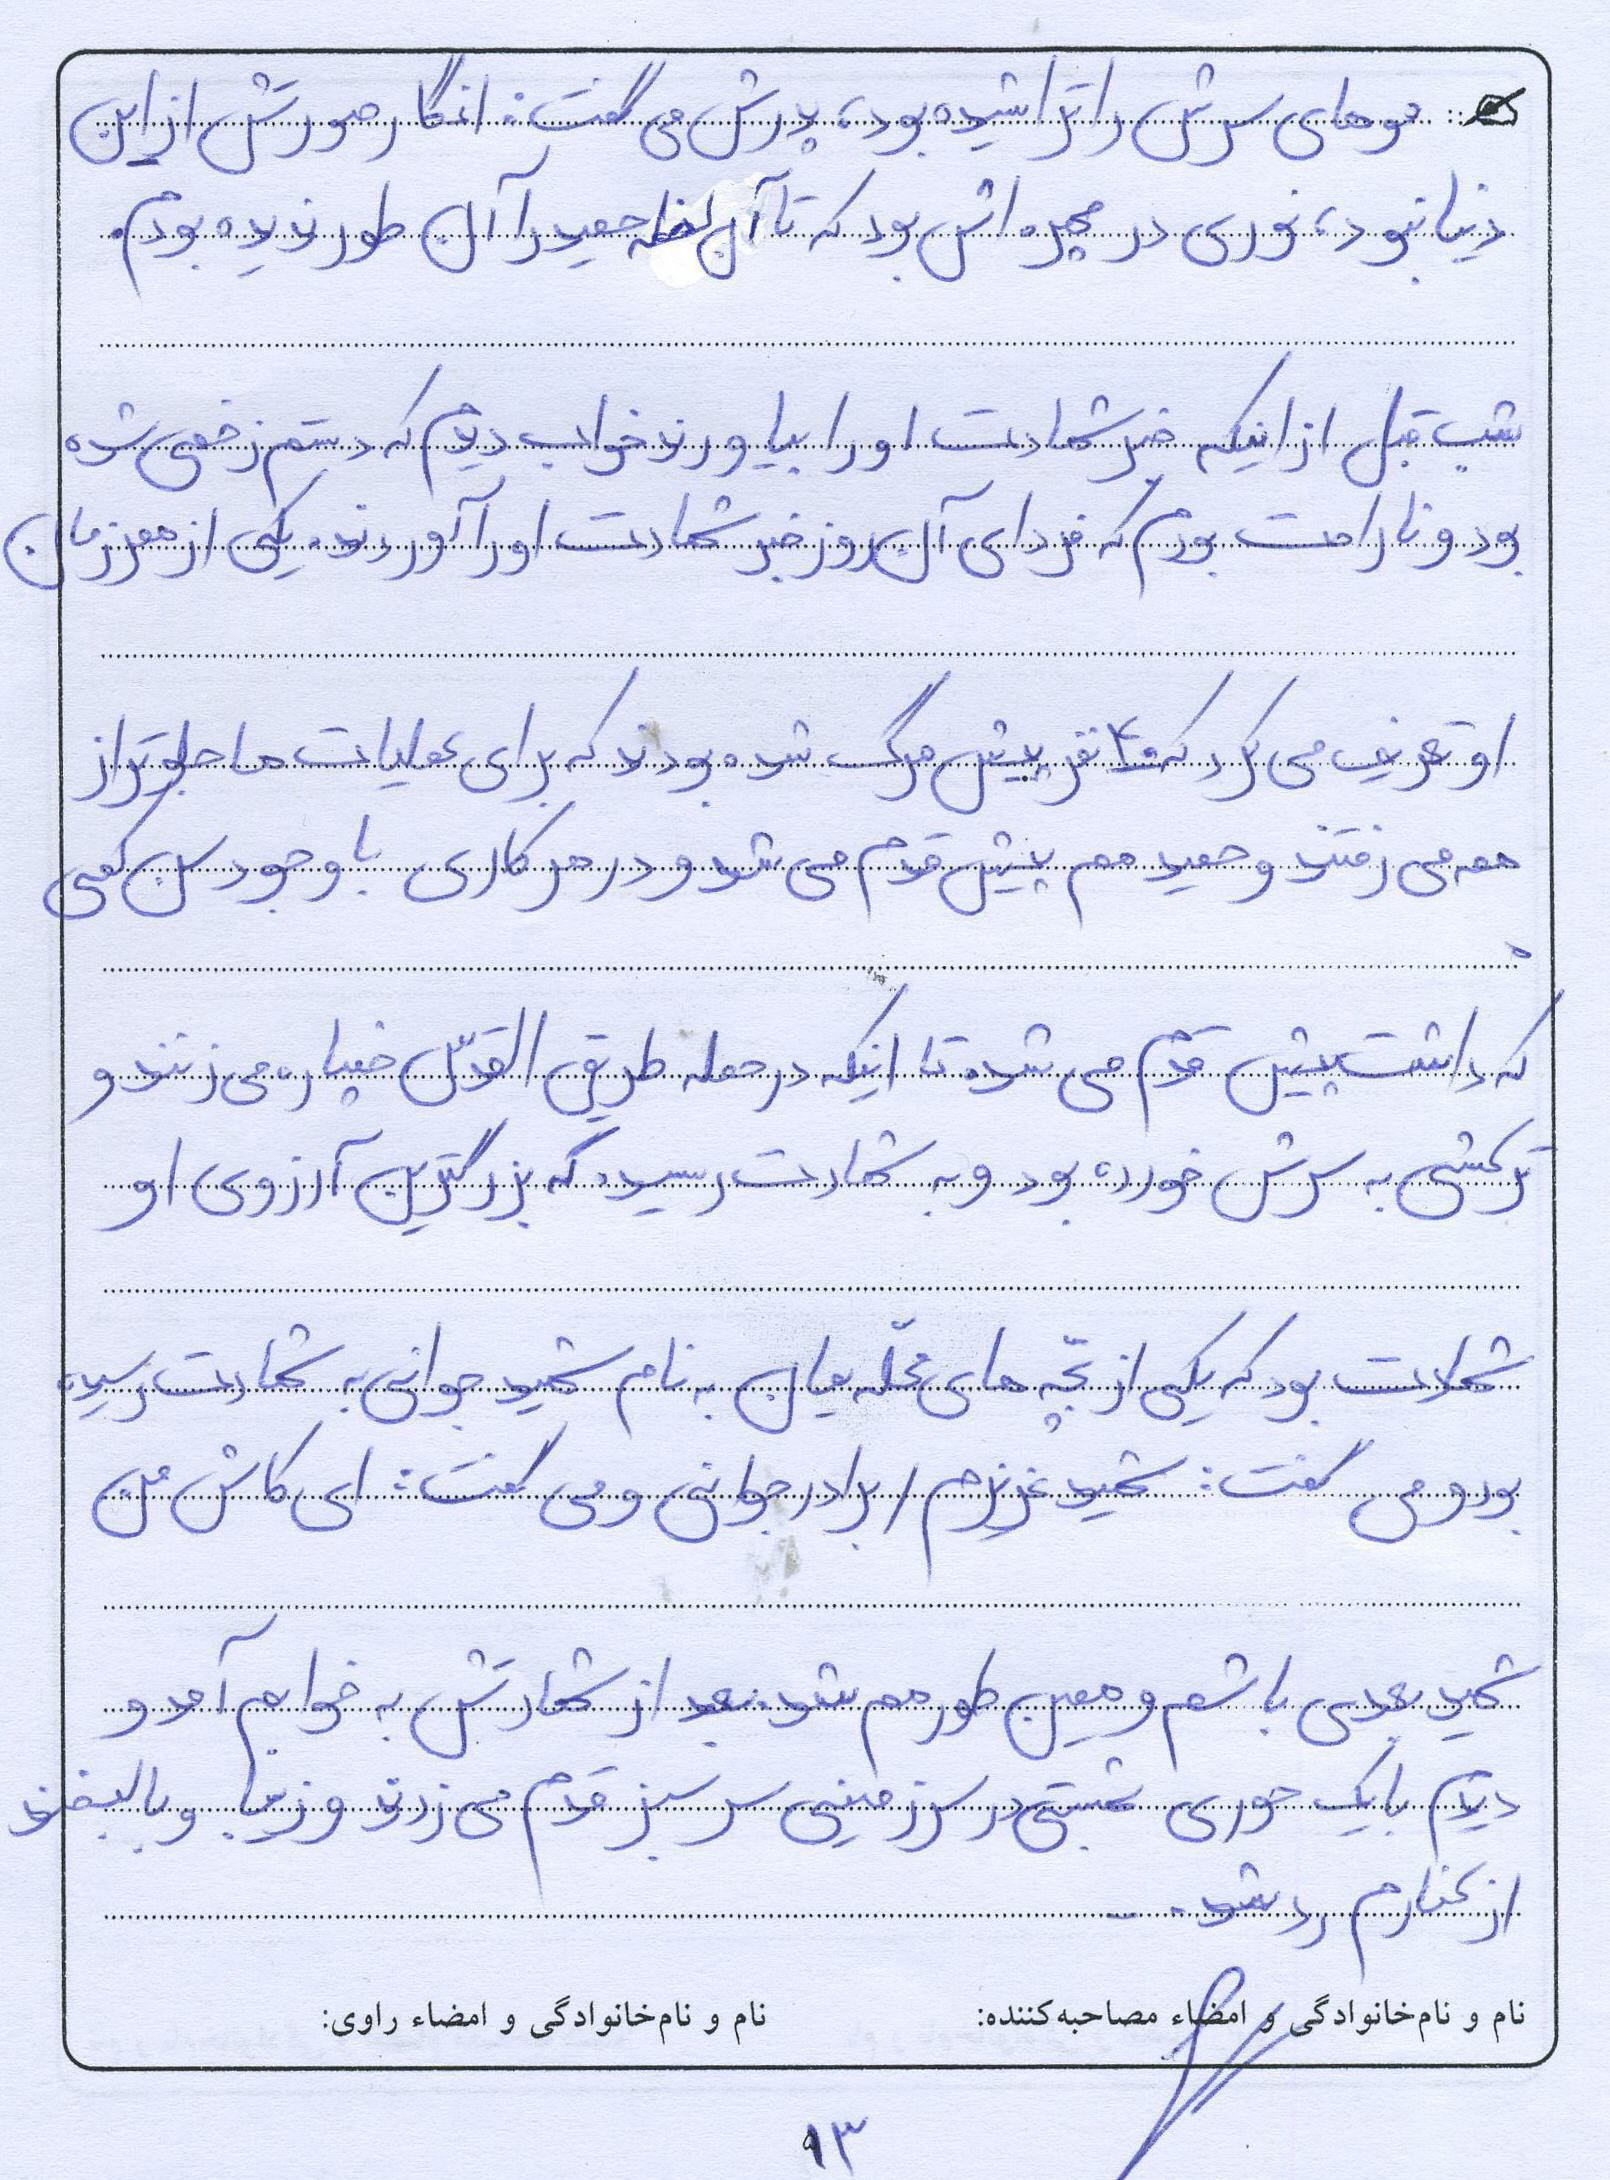 موهای سرش را تراشیده بود، پدرش می گفت: انگار صورتش از این
دنیا نبود، نوری در چهره اش بود که تا آن لحظه حمید را آن طور ندیده بودم.
شب قبل از اینکه خبر شهادت او را بیاورند خواب دیدم که دستم زخمی شده
بود و ناراحت بودم که فردای آن روز خبر شهادت او را آوردند. یکی از همرزمان
او تعریف می کرد که ۴۰ نفر پیش مرگ شده بودند که برای عملیات ها جلوتر از
همه می رفتند و حمید هم پیش قدم می شد و در هر کاری با وجود سن کمی
که داشت پیش قدم می شد. تا اینکه در حمله طریق القدس خمپاره می زنند و
ترکشی به سرش خورده بود و به شهادت رسید. که بزرگترین آرزوی او
شهادت بود که یکی از بچّه های محلّه یمان به نام شهید جوانی به شهادت رسیده
بود و می گفت: شهید عزیزم / برادر جوانی و می گفت: ای کاش من
شهید بعدی باشم و همین طور هم شد. بعد از شهادتش به خوابم آمد و
دیدم با یک حوری بهشتی در سرزمینی سرسبز قدم می زدند و زیبا و با لبخند
از کنارم رد شد.
نام و نام‌خانوادگی و امضاء مصاحبه‌کننده:
نام و نام‌خانوادگی و امضاء راوی:
۱۳